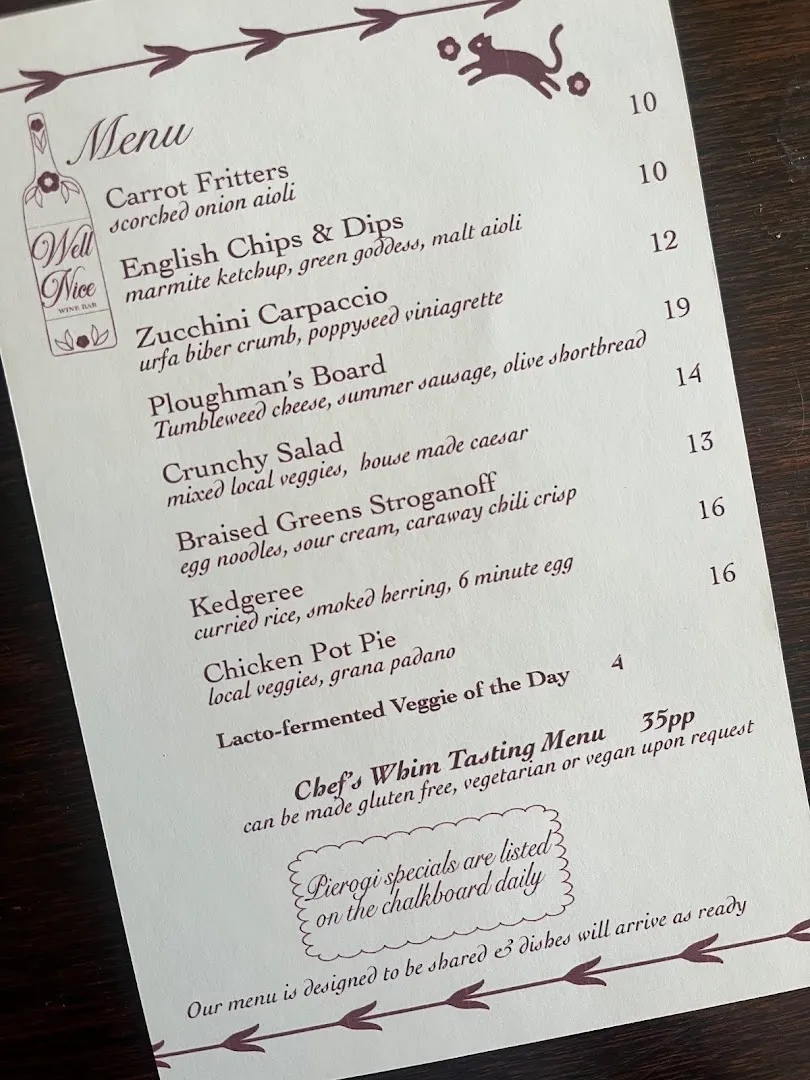 Menu
Well
Nice
WINE BAR
Carrot Fritters 10
scorched onion aioli
English Chips & Dips 10
marmite ketchup, green goddess, malt aioli
Zucchini Carpaccio 12
urfa biber crumb, poppyseed viniagrette
Ploughman's Board 19
Tumbleweed cheese, summer sausage, olive shortbread
Crunchy Salad 14
mixed local veggies, house made caesar
Braised Greens Stroganoff 13
egg noodles, sour cream, caraway chili crisp
Kedgeree 16
curried rice, smoked herring, 6 minute egg
Chicken Pot Pie 16
local veggies, grana padano
Lacto-fermented Veggie of the Day 4
Chef's Whim Tasting Menu 35pp
can be made gluten free, vegetarian or vegan upon request
Pierogi specials are listed
on the chalkboard daily
Our menu is designed to be shared & dishes will arrive as ready